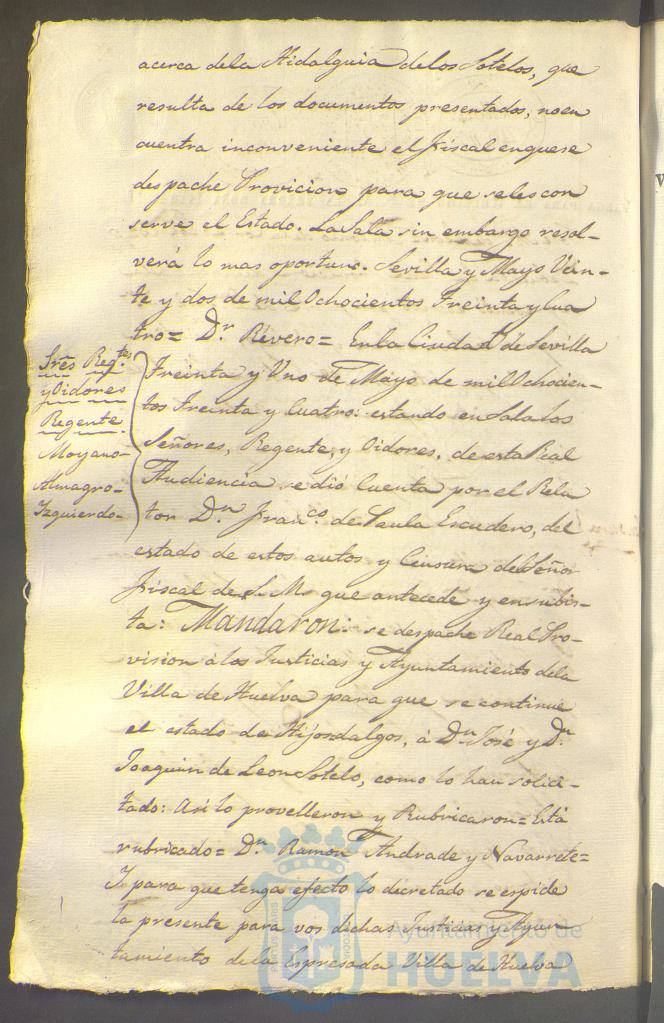 acerca dela Hidalguia delos Sotelos, que
resulta de los documentos presentados, noen
cuentra inconveniente el Fiscal enquese
despache Provicion para que selescon
serve el Estado. La Sala sin embargo resol-
verá lo mas oportuno. Sevilla y Mayo Vein-
te y dos de mil Ochocientos Treinta y Cua
tro= Dr. Rivero= Enla Ciudad de Sevilla
Treinta y Uno de Mayo de mil Ochocien-
tos Treinta y Cuatro: estando en Sala los
Señores, Regente, y Oidores, de esta Real
Audiencia se dió Cuenta por el Rela
tor Dn. Franco. de Paula Escudero, del
estado de estos autos y Censura del Señor
Fiscal de S. M. que antecede y en su bis-
ta: Mandaron: se despache Real Pro-
vision á los Justicias y Ayuntamiento dela
Villa de Huelva para que se continue
el estado de Hijosdalgos, á Dn. José y Dn.
Joaquin de Leon Sotelo, como lo han solici-
tado: Asi lo provelleron y Rubricaron= Está
rubricado= Dn. Ramon Andrade y Navarrete=
Y para que tenga efecto lo decretado se espide
la presente para vos dichas Justicias y Ayun
tamiento de la Espresada Villa de Huelva
Sres. Regtes.
y Oidores
Regente.
Moyano-
Almagro-
Izquierdo-
Ayuntamiento de
HUELVA